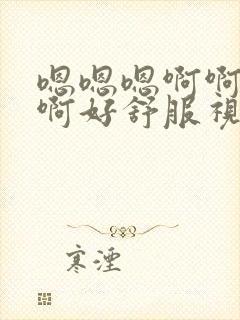 嗯嗯嗯啊啊
啊好舒服視
寒湮